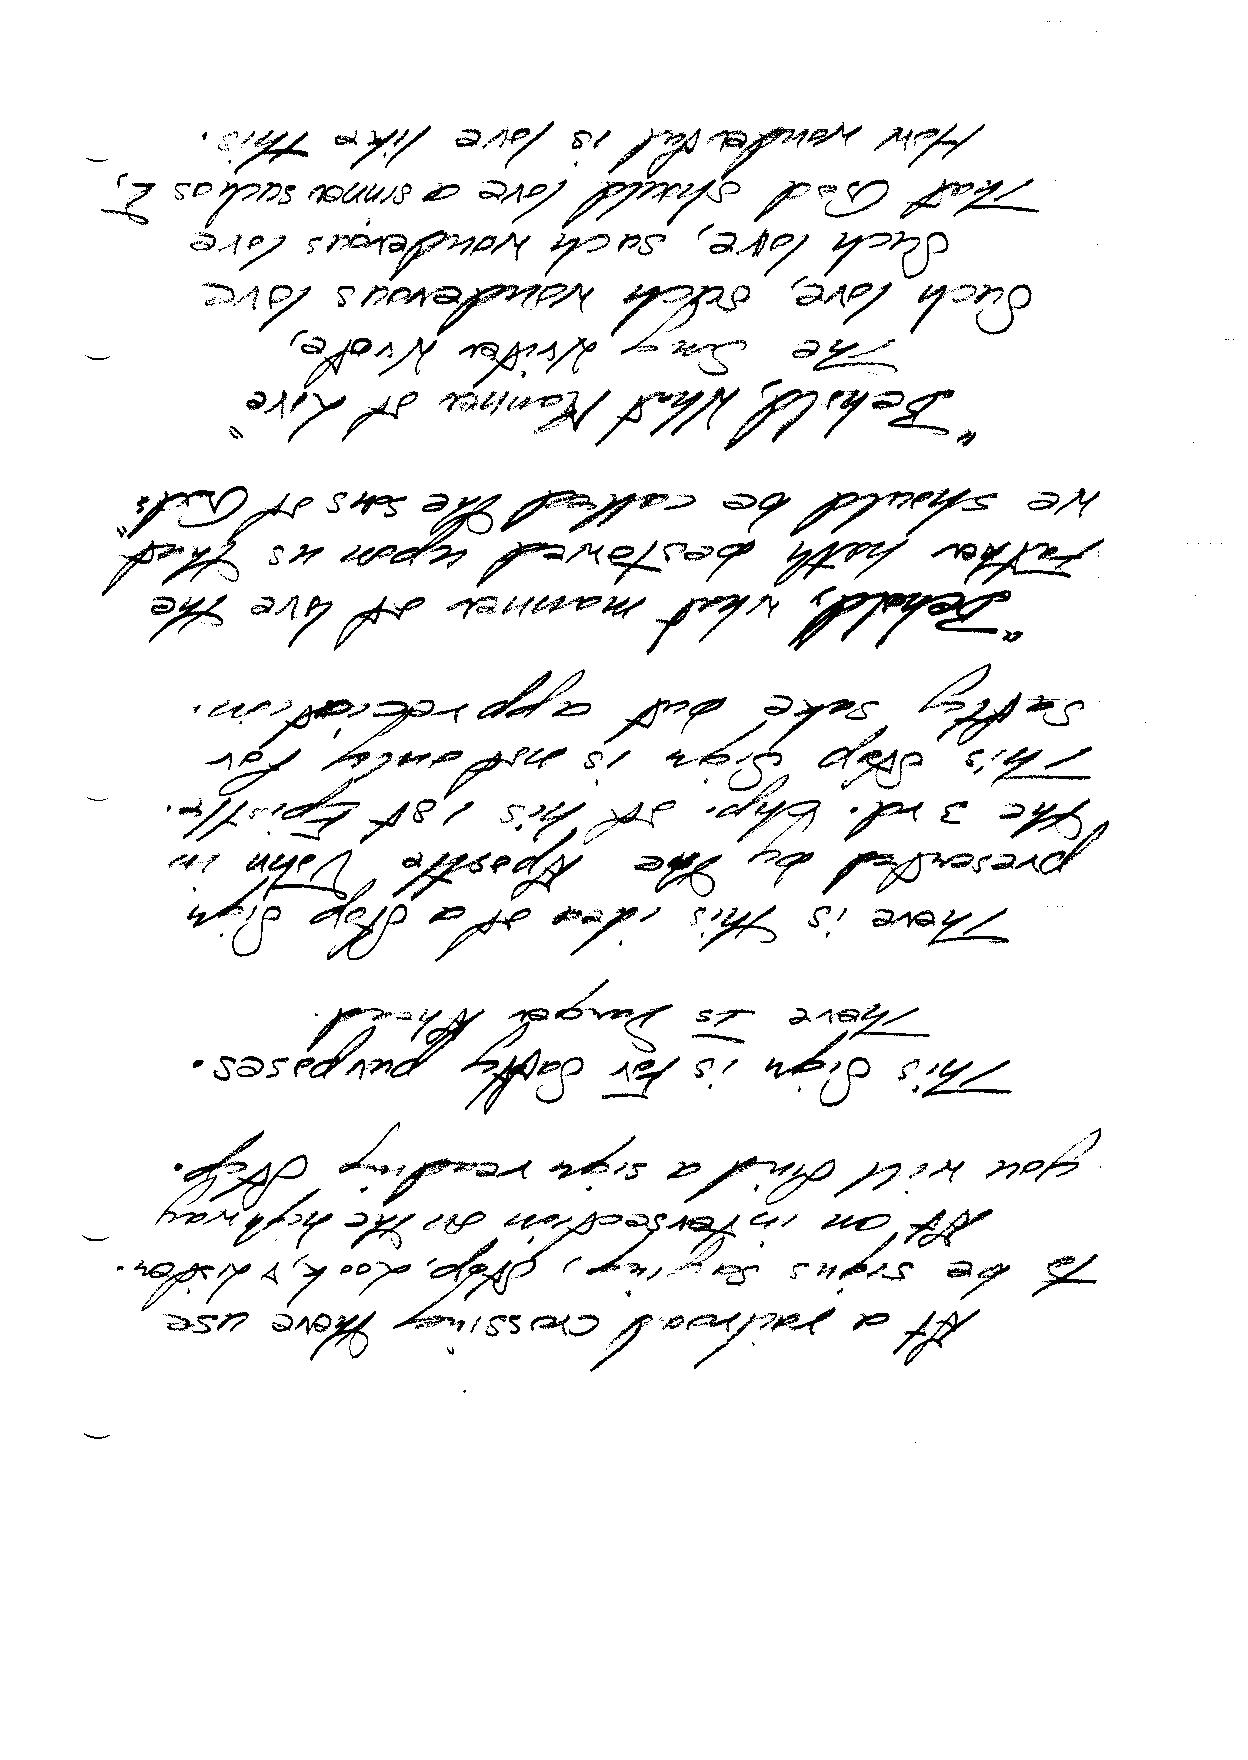 At a railroad crossing there use
To be signs saying, Stop, Look, & Listen.
At an intersection on the highway
you will find a sign reading Stop.
This Sign is for Safty purposes.
There Is Danger Ahead
There is this idea of a Stop Sign
presented by the Apostle John in
the 3rd. Chp. of his 1st Epistle.
This Stop Sign is not only for
Safty sake but appreciation.
"Behold, what manner of love the
Father hath bestowed upon us that
we should be called the sons of God."
"Behold, What Manner of Love"
The Song Writer Wrote,
Such love, such wonderous love
Such love, such wonderous love
That God should love a sinner such as I,
How wonderful is love like this.